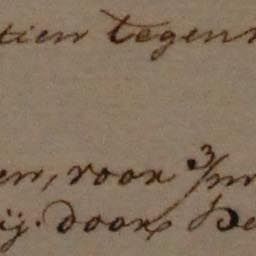 tien tegen
en, voor 3/m
ij. door De